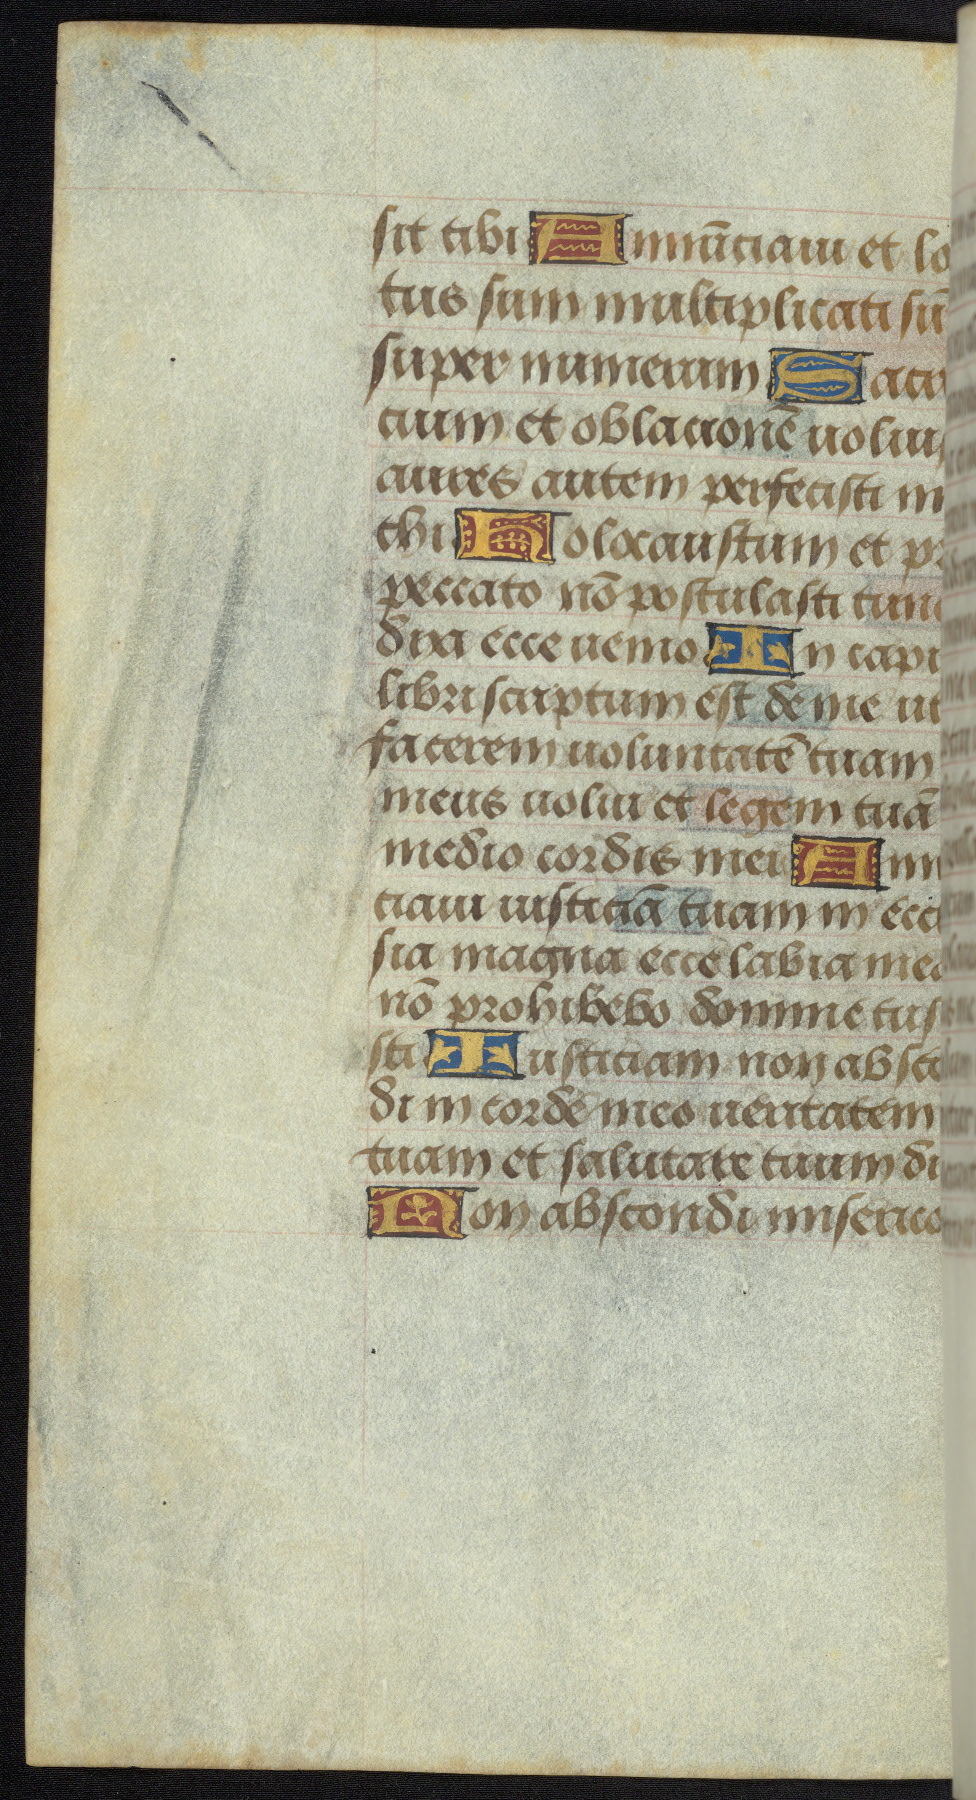 sit tibi Annūciaui et lo
tus sum multiplicati sū
super numerum Sacri
cium et oblacionē uoluis
aures autem perfecisti m
chi Holocaustum et pr
peccato nō postulasti tunc
dixi ecce uenio In capi
libri scriptum est de me ut
facerem uoluntatē tuam
meus uolui et legem tuā
medio cordis mei Ann
ciaui iusticiā tuam in eccl
sia magna ecce labia mea
nō prohibebo domine tu s
sti Iusticiam non absco
di in corde meo ueritatem
tuam et salutare tuum di
Non abscondi miserico